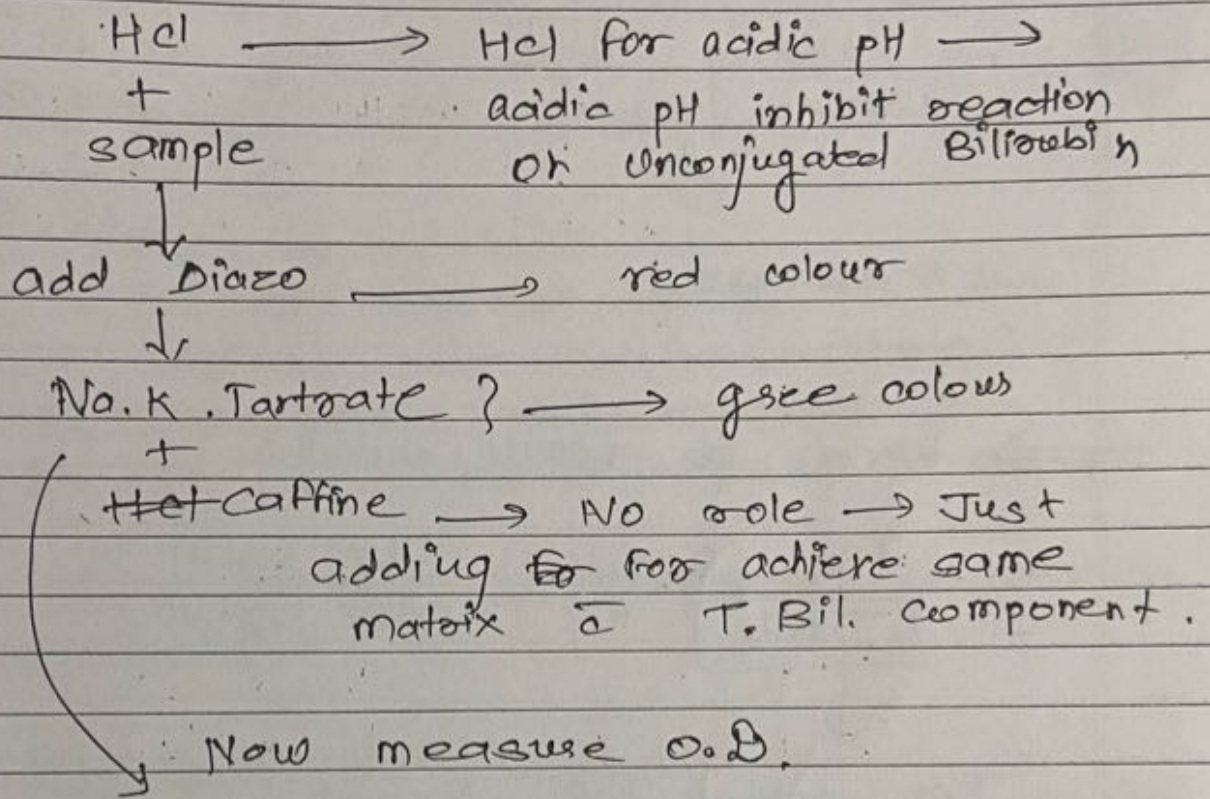 HCl → HCl for acidic pH →
+ acidic pH inhibit reaction
sample on unconjugated Bilirubin
↓
add Diazo → red colour
↓
Na. K. Tartrate } → gree colour
+
Hcl Caffine → No role → Just
adding fo for achieve same
matrix c̄ T. Bil. component.
Now measure O.D.